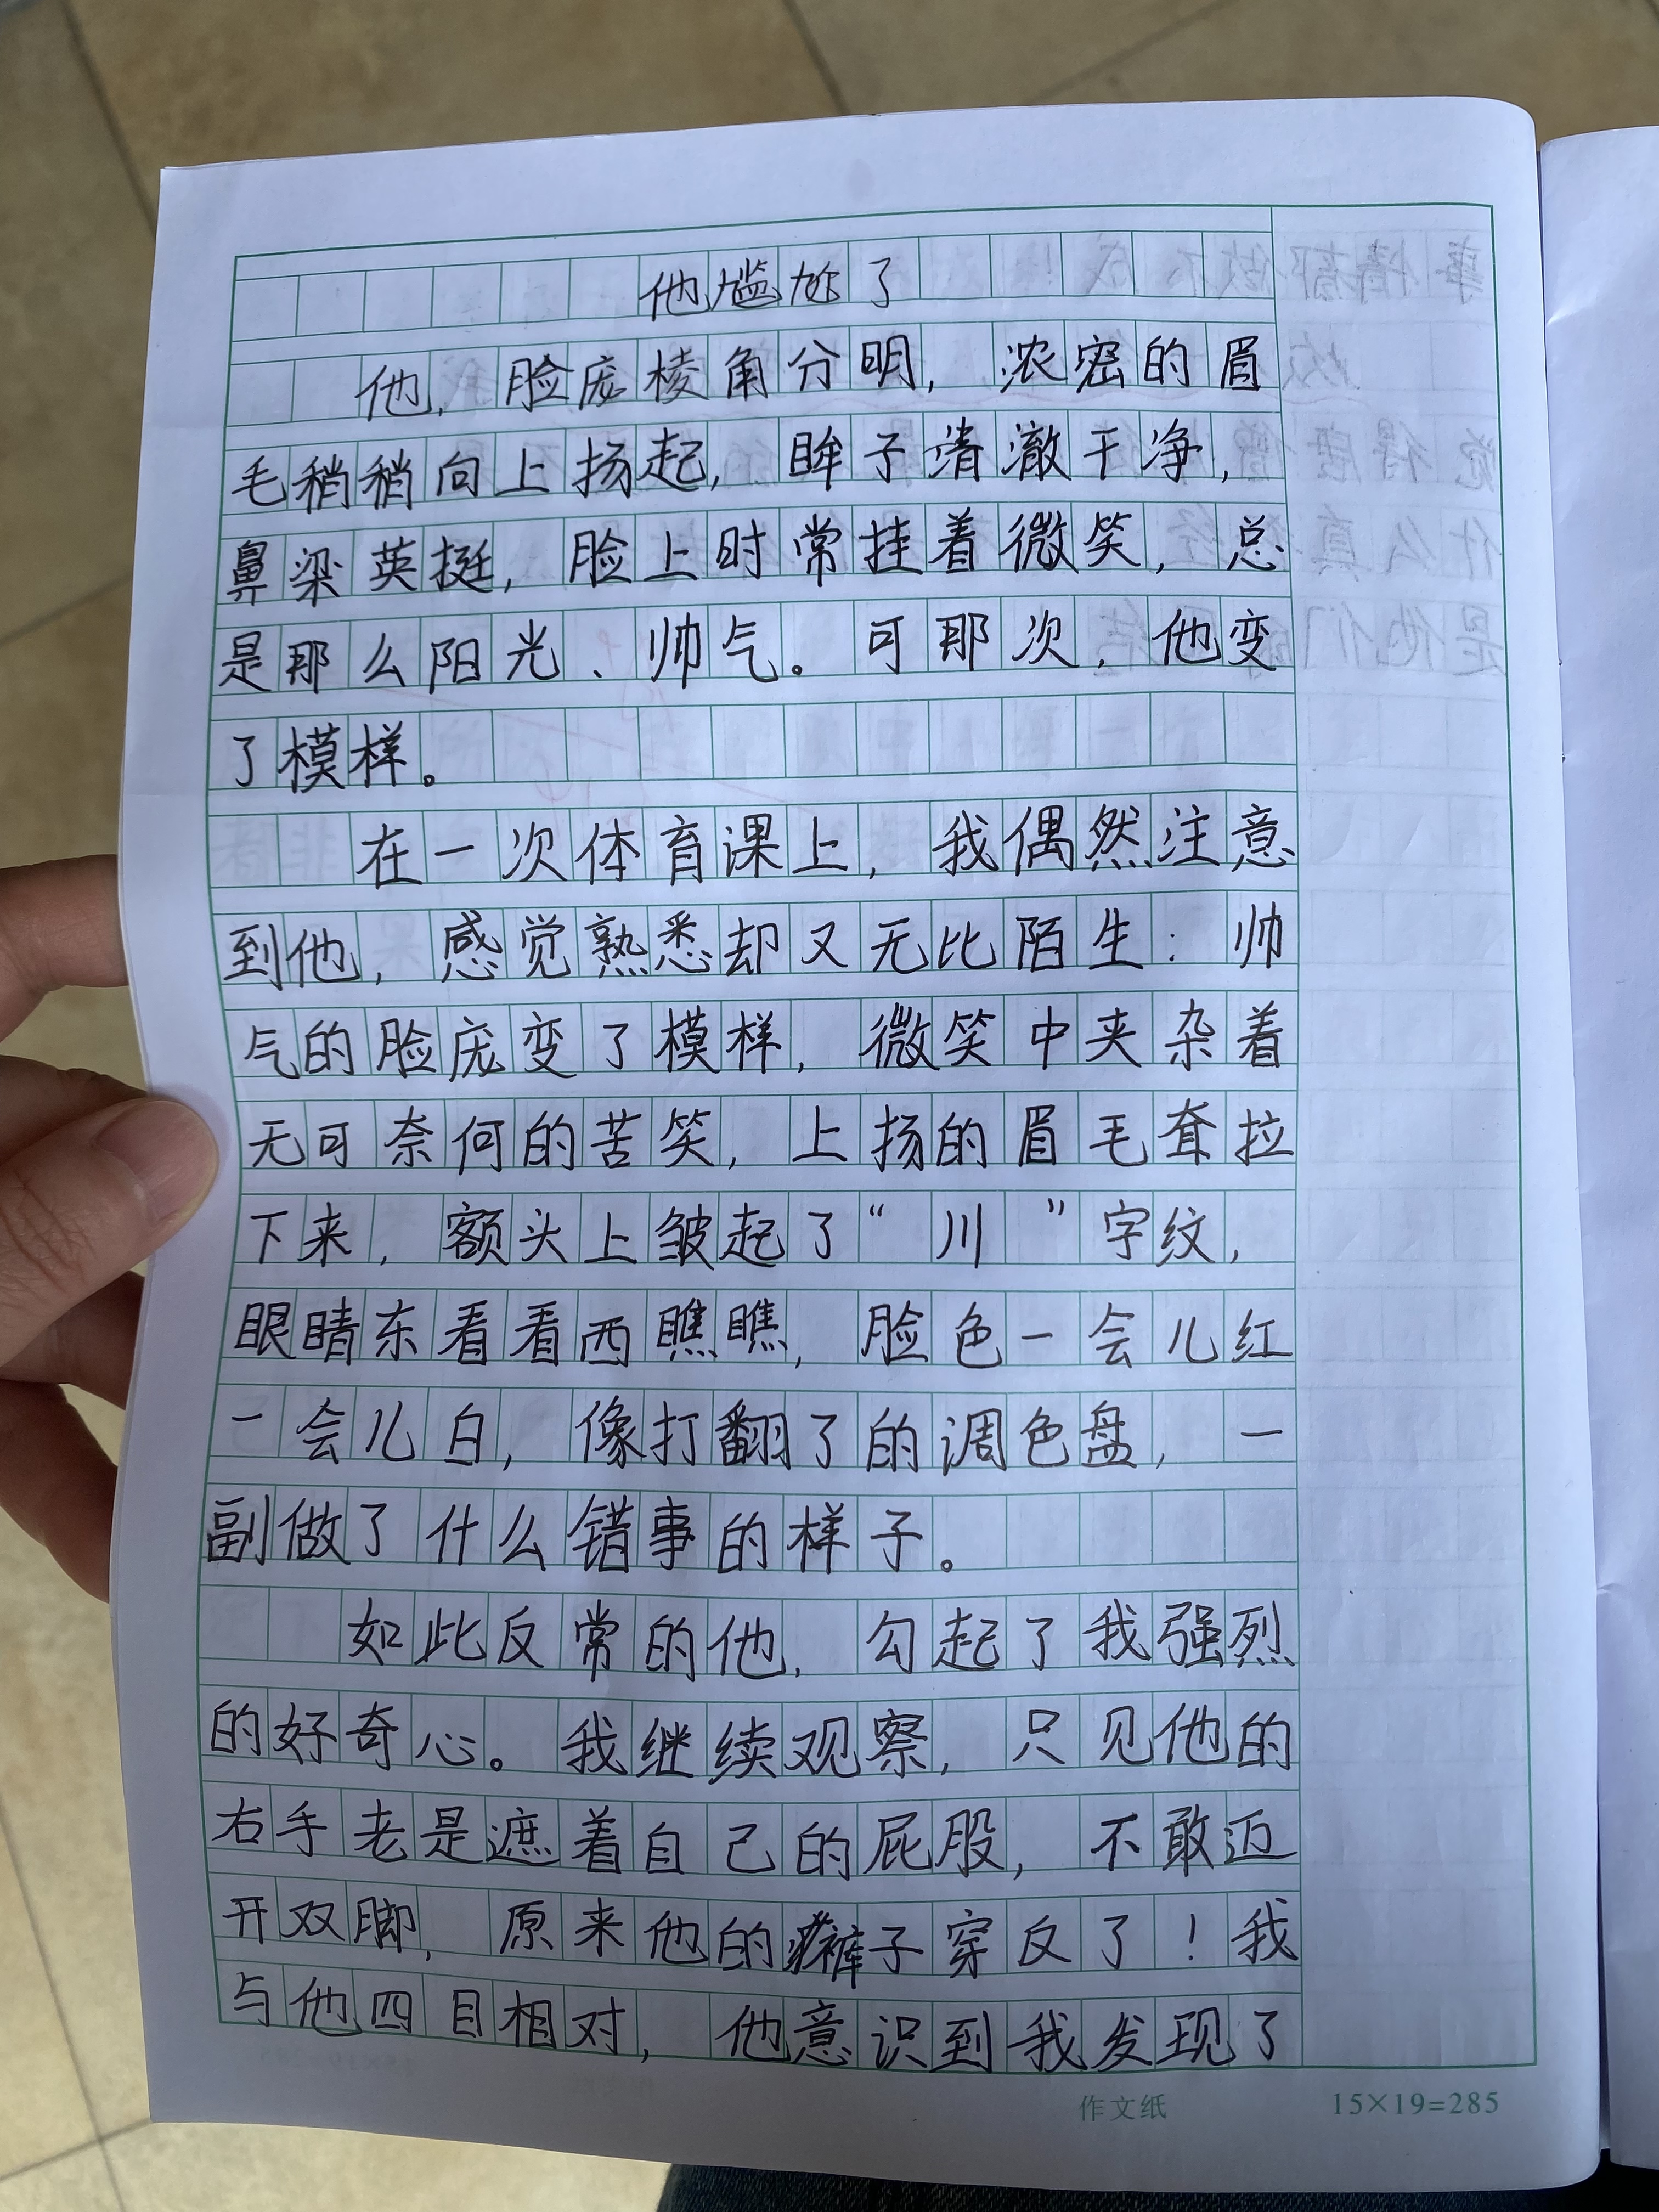 他尴尬了
他，脸庞棱角分明，浓密的眉
毛稍稍向上扬起，眸子清澈干净，
鼻梁英挺，脸上时常挂着微笑，总
是那么阳光、帅气。可那次，他变
了模样。
在一次体育课上，我偶然注意
到他，感觉熟悉却又无比陌生：帅
气的脸庞变了模样，微笑中夹杂着
无可奈何的苦笑，上扬的眉毛耷拉
下来，额头上皱起了“川”字纹，
眼睛东看看西瞧瞧，脸色一会儿红
一会儿白，像打翻了的调色盘，一
副做了什么错事的样子。
如此反常的他，勾起了我强烈
的好奇心。我继续观察，只见他的
右手老是遮着自己的屁股，不敢迈
开双脚，原来他的裤子穿反了！我
与他四目相对，他意识到我发现了
作文纸 15×19=285